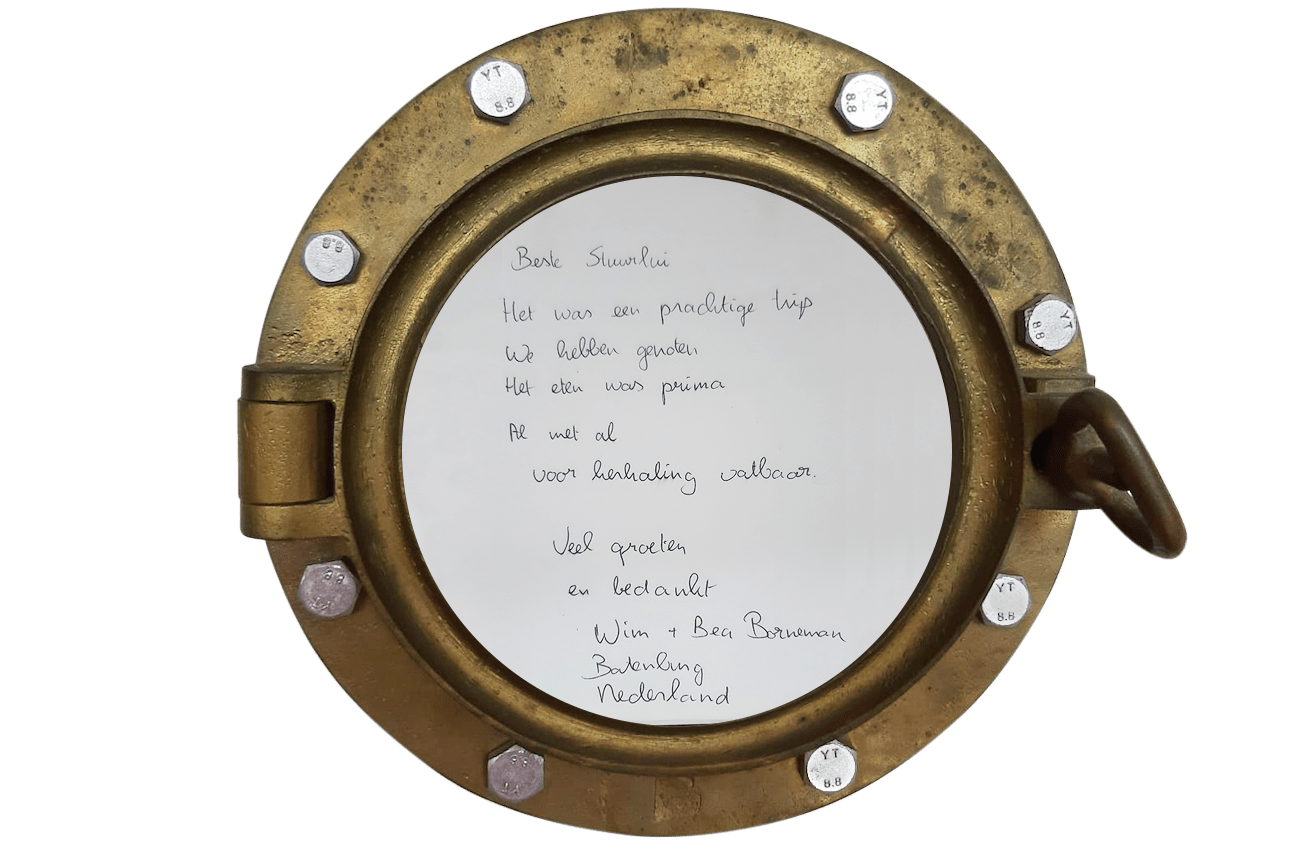 YT
8.8
YT
8.8
8.8
YT
8.8
Beste Stuurlui
Het was een prachtige trip
We hebben genoten
Het eten was prima
Al met al
voor herhaling vatbaar.
Veel groeten
en bedankt
Wim + Bea Borneman
Batenburg
Nederland
8.8
YT
YT
8.8
8.8
YT
YT
8.8